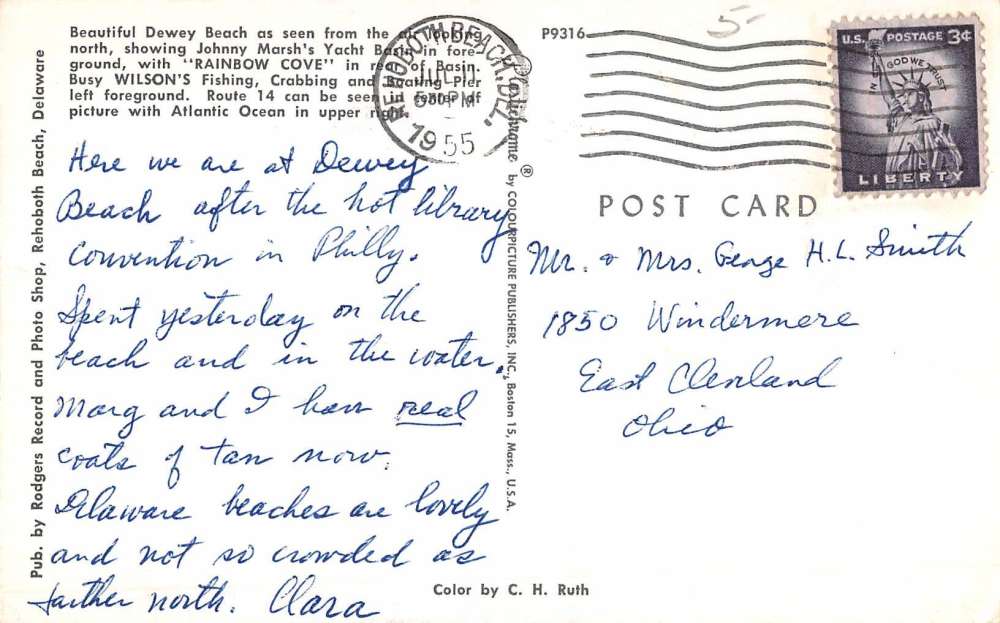 Beautiful Dewey Beach as seen from the air looking
north, showing Johnny Marsh's Yacht Basin in fore-
ground, with "RAINBOW COVE" in rear of Basin.
Busy WILSON'S Fishing, Crabbing and Boating Pier
left foreground. Route 14 can be seen in center of
picture with Atlantic Ocean in upper right.
P9316
5-
REHOBOTH BEACH, DEL.
JUL 11
PM
1955
U.S. POSTAGE 3¢
IN GOD WE TRUST
LIBERTY
POST CARD
Here we are at Dewey
Beach after the hot library
convention in Philly.
Spent yesterday on the
beach and in the water.
Marg and I have real
coats of tan now.
Delaware beaches are lovely
and not so crowded as
farther north. Clara
Mr. & Mrs. George H.L. Smith
1850 Windermere
East Cleveland
Ohio
Pub. by Rodgers Record and Photo Shop, Rehoboth Beach, Delaware
® by COLOURPICTURE PUBLISHERS, INC., Boston 15, Mass., U.S.A.
Color by C. H. Ruth